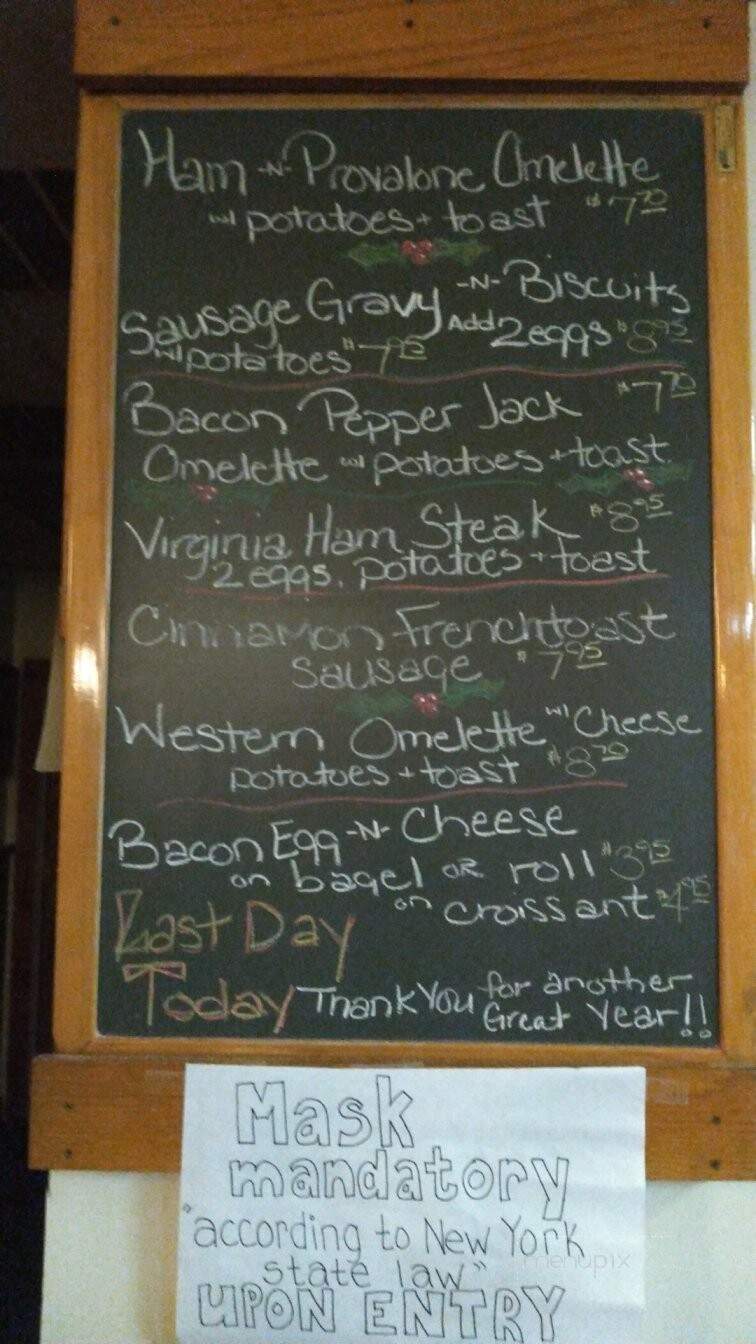 Ham -N- Provalone Omelette
w/ potatoes + toast $7.70
Sausage Gravy -N- Biscuits
w/ potatoes $7.95 Add 2 eggs $8.95
Bacon Pepper Jack $7.70
Omelette w/ potatoes + toast
Virginia Ham Steak $8.95
2 eggs, potatoes + toast
Cinnamon Frenchtoast
Sausage $7.95
Western Omelette w/ Cheese
potatoes + toast $8.70
Bacon Egg -N- Cheese
on bagel OR roll $3.95
on croissant $4.95
Last Day
Today Thank You for another
Great Year!!
Mask
mandatory
"according to New York
state law"
UPON ENTRY
menupix